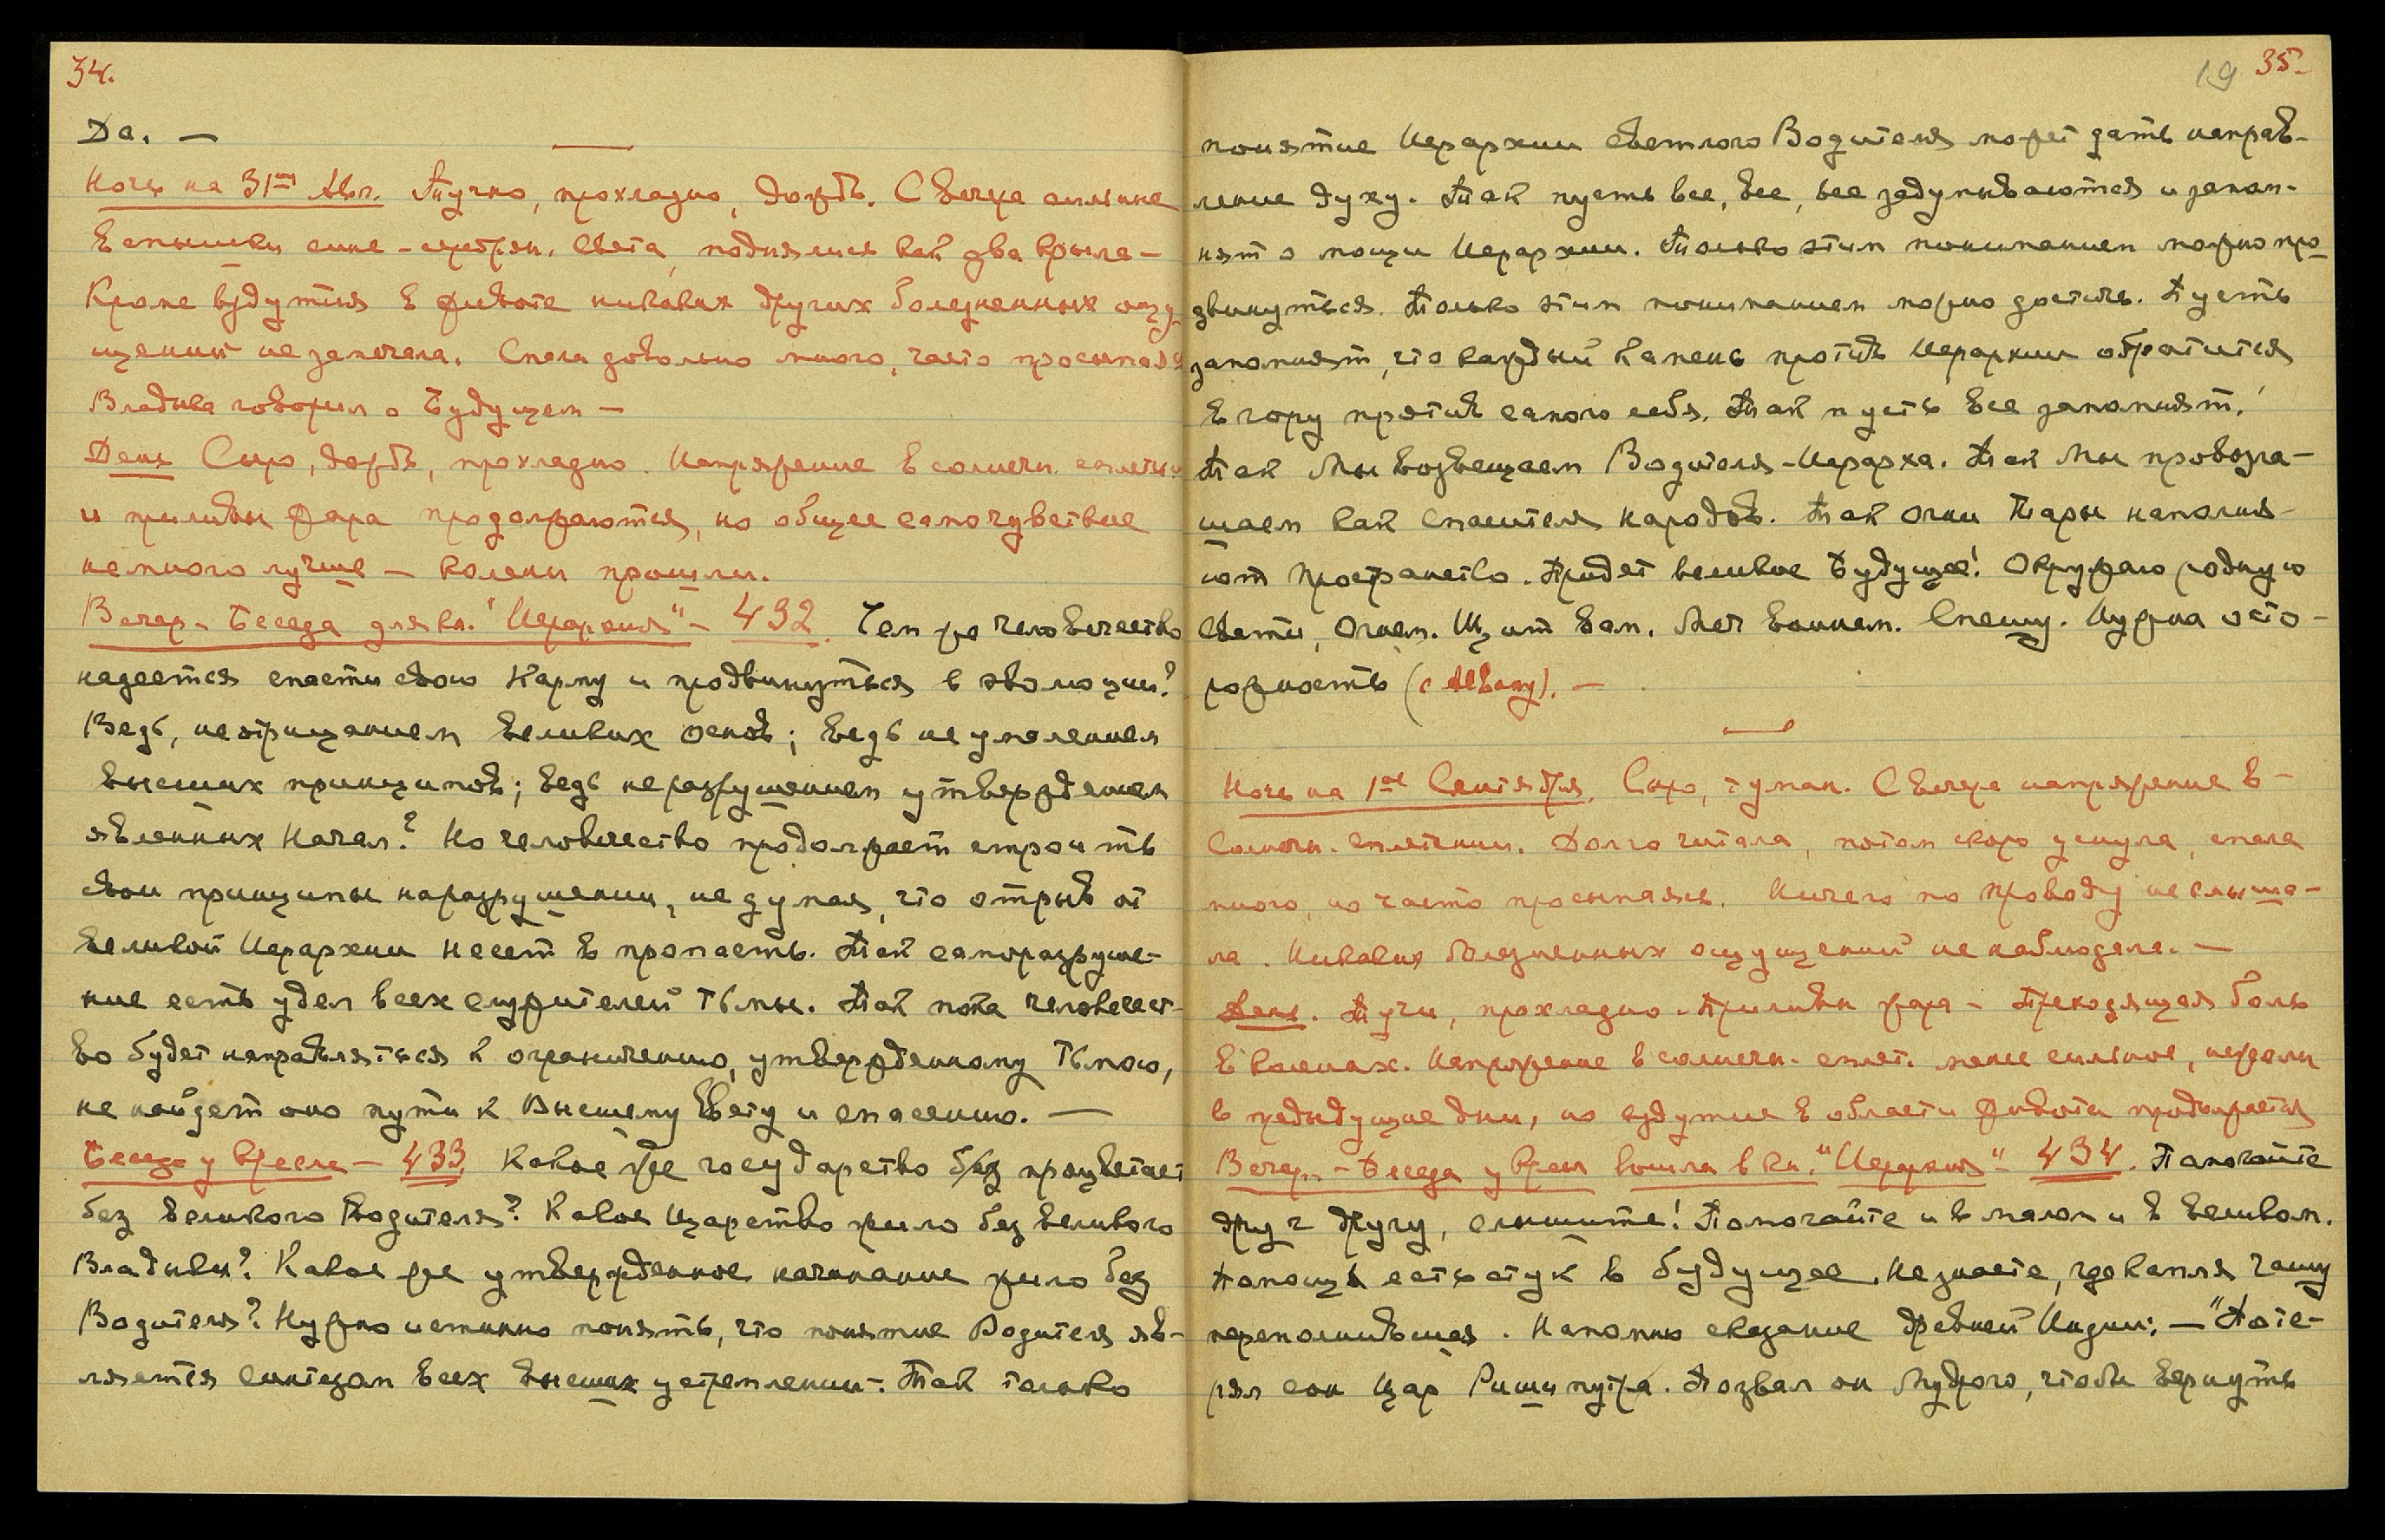 34.
Да. —
Ночь на 31ое Авг. Тучно, прохладно, дождь. С вечера сильные
вспышки сине-серебрян. света, поднялись как два крыла —
Кроме вздутия в животе никаких других болезненных ощу-
щений не замечала. Спала довольно много, часто просыпаясь
Владыка говорил о Будущем —
День Сыро, дождь, прохладно. Напряжение в солнечн. сплетен.
и приливы жара продолжаются, но общее самочувствие
немного лучше — колени прошли.
Вечер — Беседа для кн. "Иерархия" — 432. Чем же человечество
надеется спасти свою Карму и продвинуться в эволюции?
Ведь, не отрицанием великих основ; ведь не умалением
высших принципов; ведь не разрушением утверждения
явленных Начал? Но человечество продолжает строить
свои принципы на разрушении, не думая, что отрыв от
великой Иерархии несет в пропасть. Так саморазруше-
ние есть удел всех служителей тьмы. Так пока человечест-
во будет направляться к ограничению, утвержденному тьмою,
не найдет оно пути к Высшему Свету и спасению. —
Беседа у кресла — 433 Какое же государство без процветает
без великого Водителя? Какое царство жило без великого
Владыки? Какое же утвержденное начинание жило без
Водителя? Нужно истинно понять, что понятие Водителя яв-
ляется синтезом всех высших устремлений. Так только
19 35
понятие Иерархии светлого Водителя может дать направ-
ление духу. Так пусть все, все, все задумываются и запом-
нят о мощи Иерархии. Только этим пониманием можно про-
двинуться. Только этим пониманием можно достичь. Пусть
запомнят, что каждый камень против Иерархии обратится
в гору против самого себя. Так пусть все запомнят!
Так Мы возвещаем Водителя-Иерарха. Так Мы провозгла-
шаем как спасителя народов. Так огни Тары наполня-
ют пространство. Придет великое Будущее! Окружаю родную
Свети, Огнем. Щит вам. Меч воинам. Спешу. Нужна осто-
рожность (с Абваку). —
Ночь на 1ое Сентября. Сыро, туман. С вечера напряжение в —
солнечн. сплетении. Долго читала, потом скоро уснула, спала
много, но часто просыпаясь. Ничего по проводу не слыша-
ла. Никаких болезненных ощущений не наблюдала. —
День. Тучи, прохладно. Приливы жара — Преходящая боль
в коленах. Напряжение в солнечн. сплет. менее сильное, нежели
в предыдущие дни, но вздутие в области живота продолжается
Вечер. — Беседа у кресл вошла в кн. "Иерархия" — 434. Помогайте
друг другу, слышите! Помогайте и в малом и в великом.
Помощь есть стук в будущее. Не знаете, где капля чашу
переполнившая. Напомню сказание древней Индии: — "Поте-
рял сон Царь Ришипутра. Позвал он Мудрого, чтобы вернуть